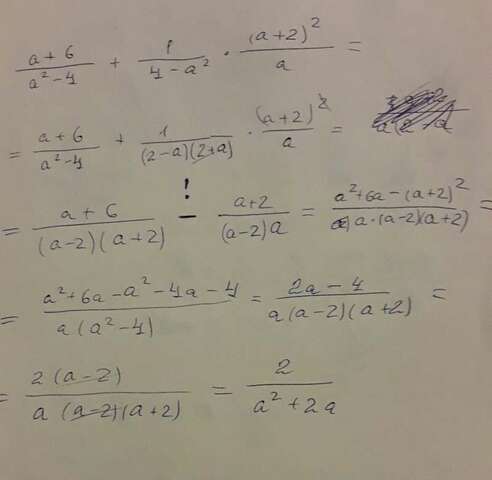 (a+6)/(a²-4) + 1/(4-a²) · (a+2)²/a =
= (a+6)/(a²-4) + 1/((2-a)(2+a)) · (a+2)²/a =
!
= (a+6)/((a-2)(a+2)) - (a+2)/((a-2)a) = (a²+6a-(a+2)²)/(a·(a-2)(a+2)) =
= (a²+6a-a²-4a-4)/(a(a²-4)) = (2a-4)/(a(a-2)(a+2)) =
= 2(a-2)/(a(a-2)(a+2)) = 2/(a²+2a)